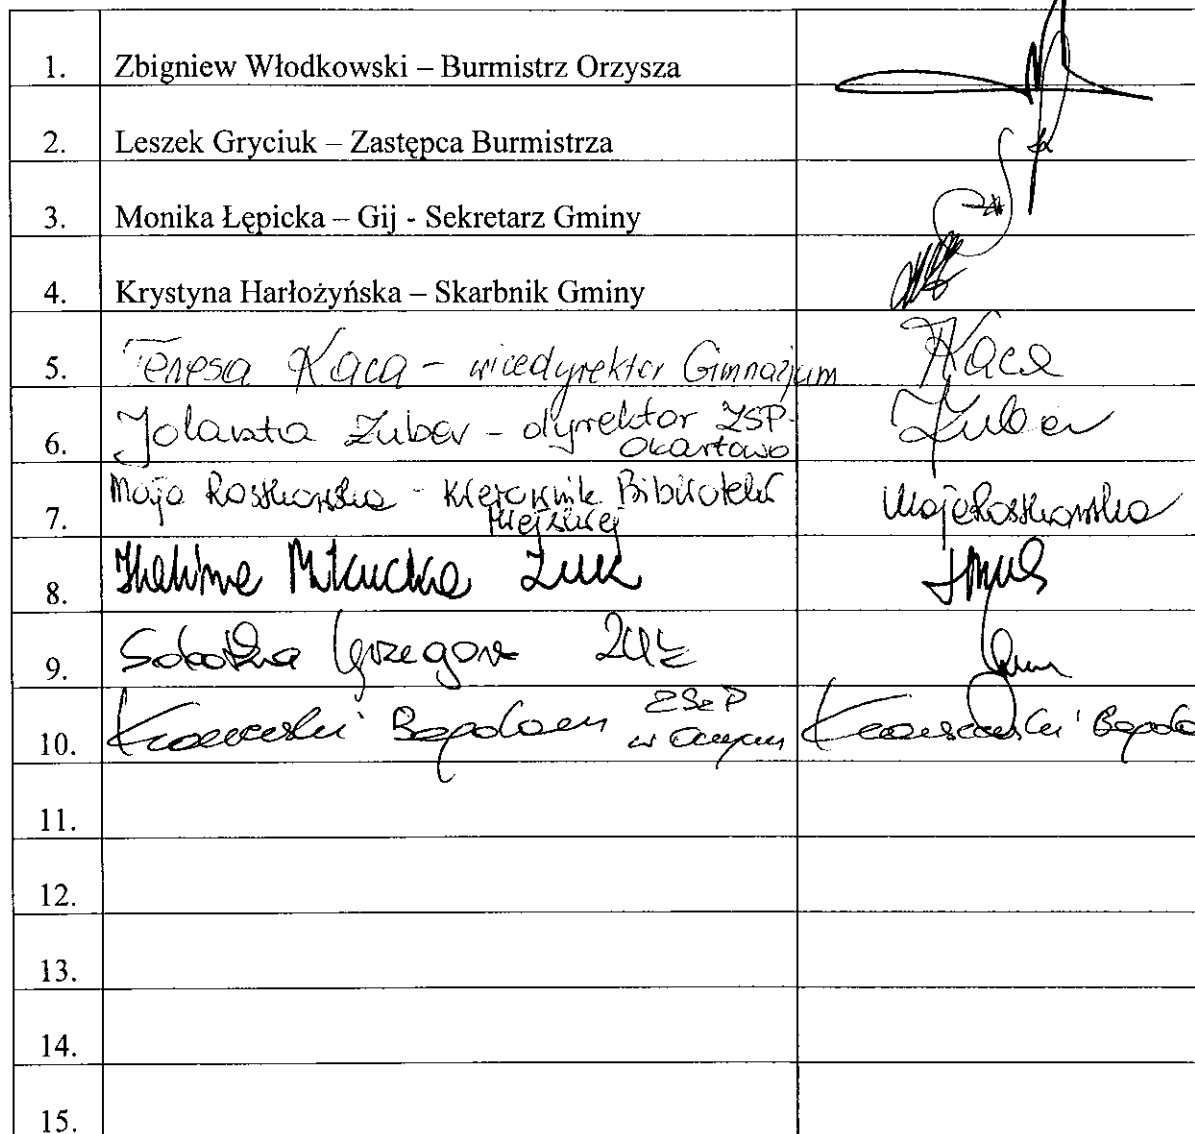 1. Zbigniew Włodkowski – Burmistrz Orzysza
2. Leszek Gryciuk – Zastępca Burmistrza
3. Monika Łępicka – Gij - Sekretarz Gminy
4. Krystyna Harłożyńska – Skarbnik Gminy
5. Teresa Kaca – wicedyrektor Gimnazjum Kaca
6. Jolanta Zuber – dyrektor ZSP- Zuber
Okartowo
7. Maja Rostkowska - Kierownik Biblioteki Maja Rostkowska
Miejskiej
8. Halina Mikucka Żuk
9. Sobotka Grzegorz
10. Bogdan ZSeP
w
11.
12.
13.
14.
15.